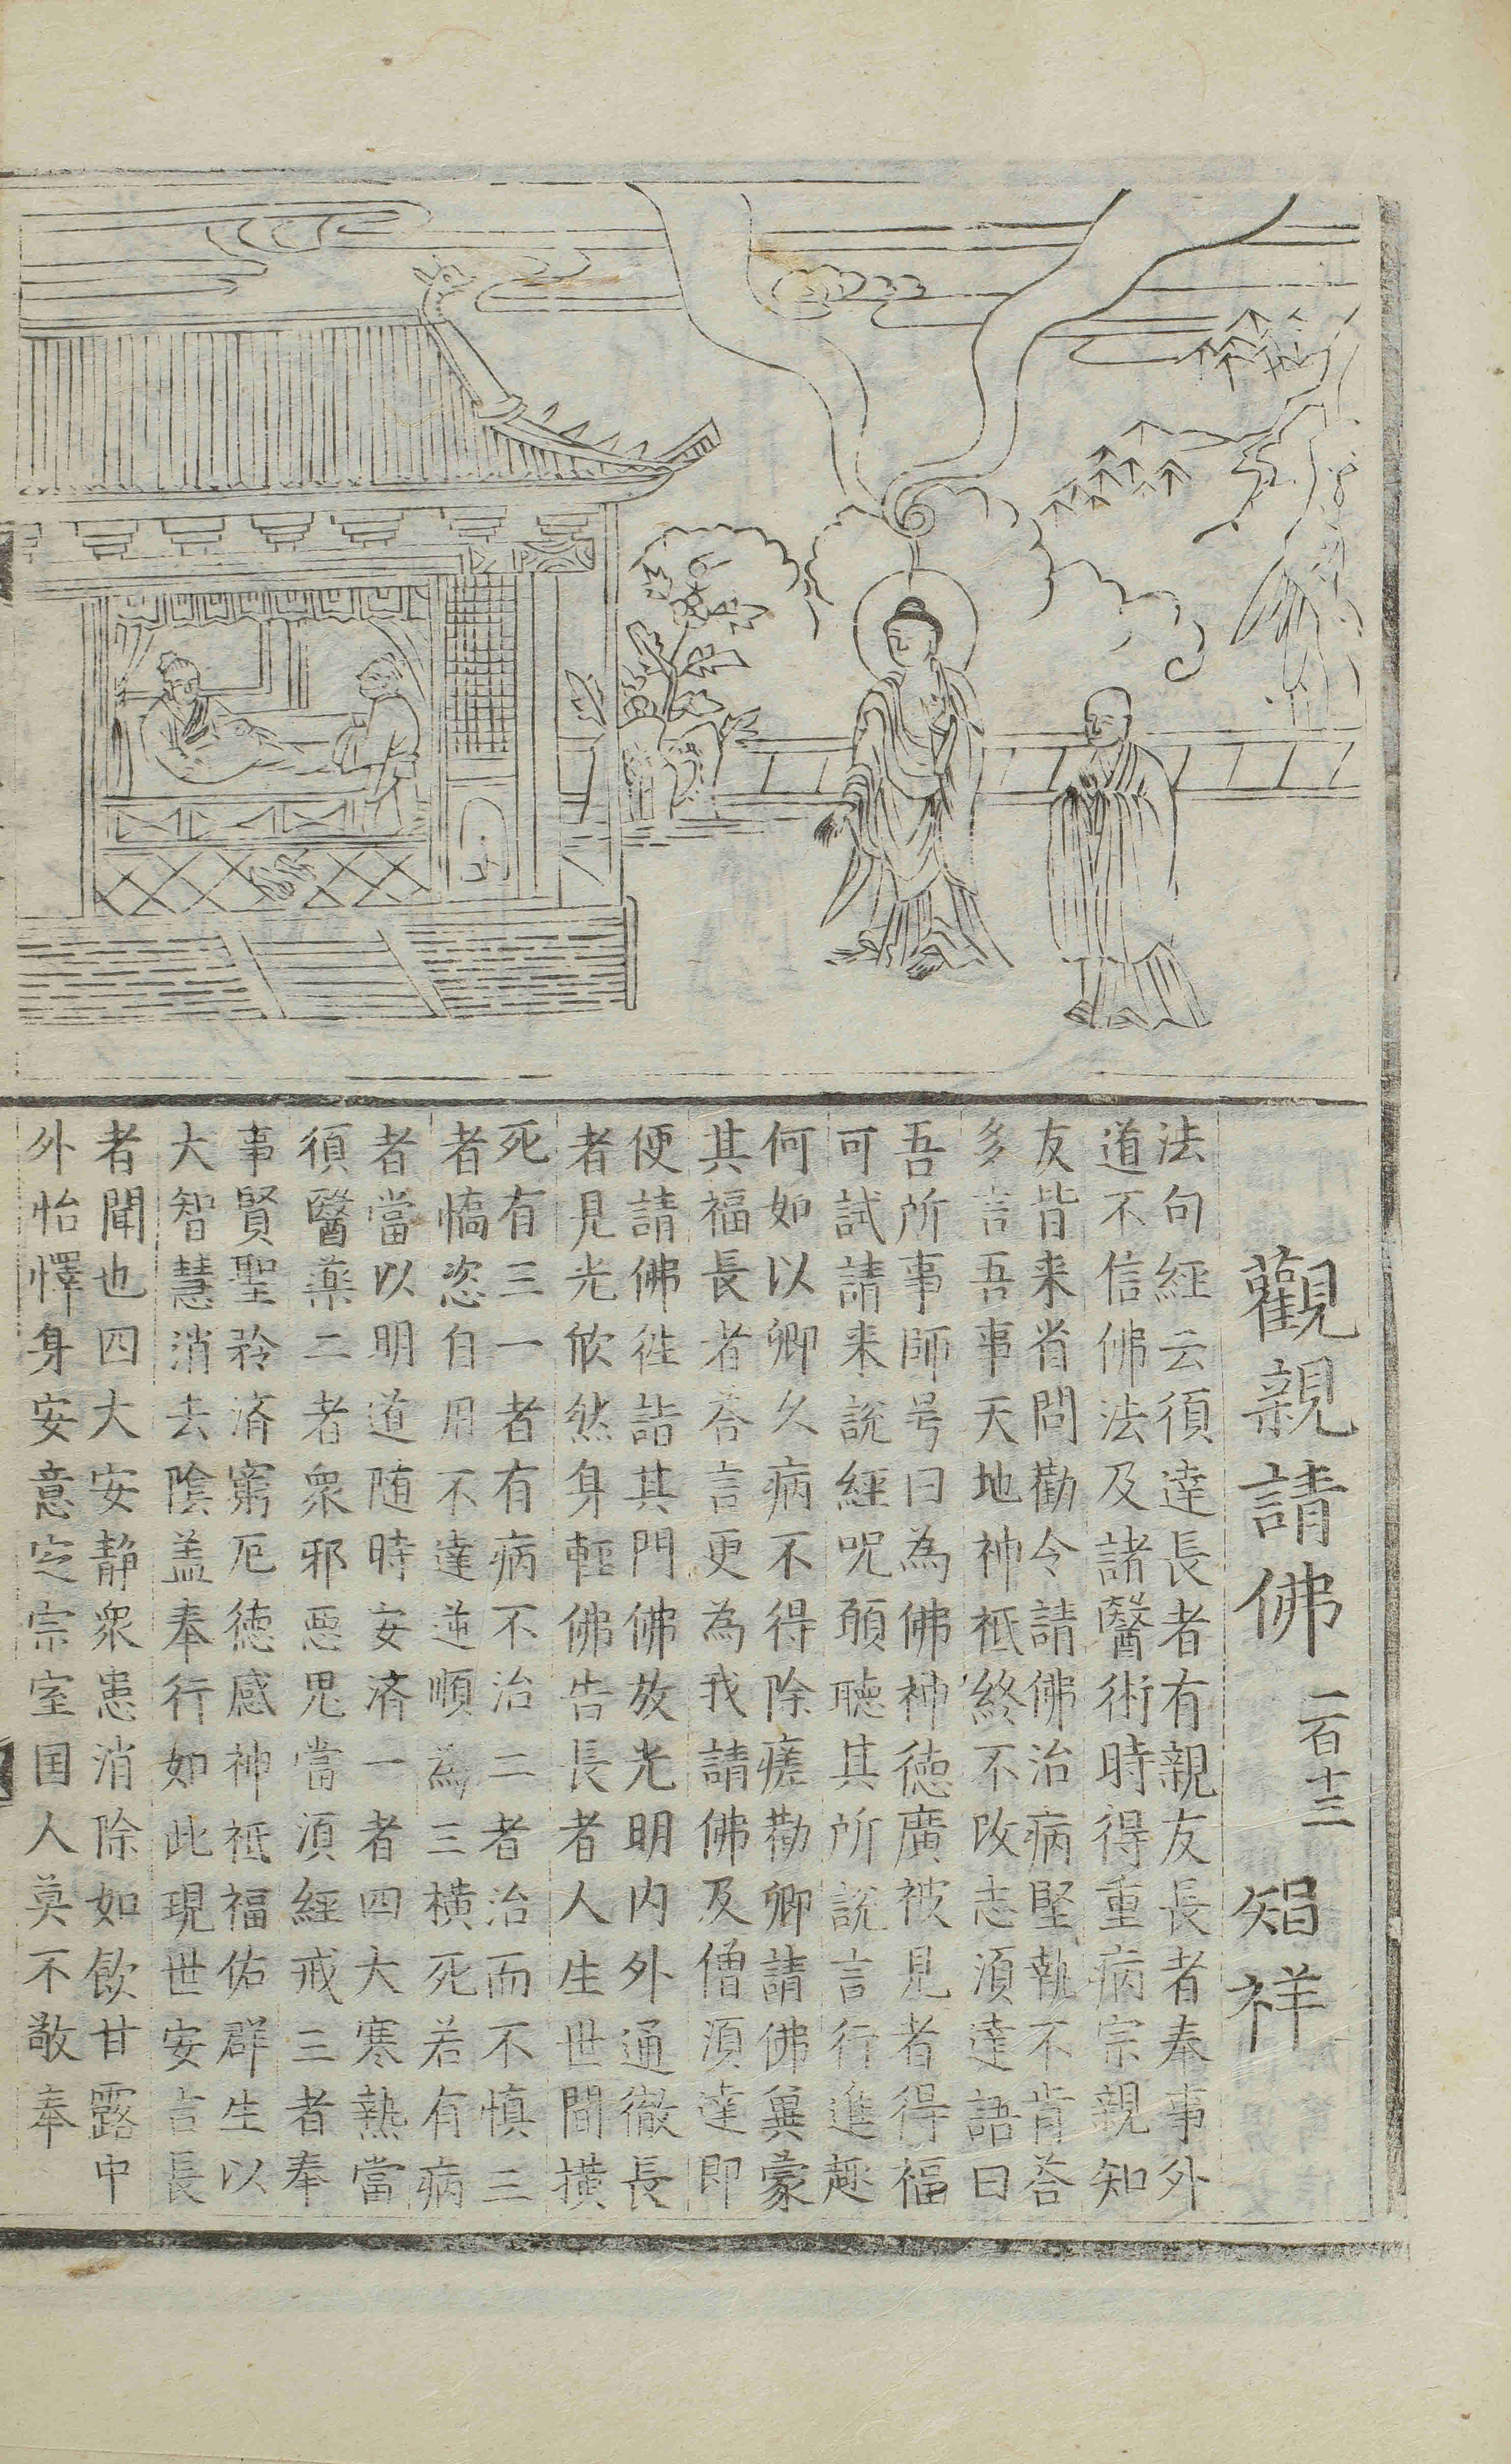 觀親請佛 二百十三 祥
法句經云須達長者有親友長者奉事外
道不信佛法及諸醫術時得重病宗親知
友皆来省問勸令請佛治病堅執不肯荅
多言吾事天地神祇終不改志須達語曰
吾所事師号曰為佛神徳廣被見者得福
可試請来說經呪願聽其所說言行進趣
何如以卿久病不得除瘥勸卿請佛兾蒙
其福長者荅言更為我請佛及僧須達即
便請佛徃詣其門佛放光明内外通徹長
者見光欣然身輕佛告長者人生世間橫
死有三一者有病不治二者治而不慎三
者憍恣自用不達逆順為三橫死若有病
者當以明道随時安済一者四大寒熱當
須醫藥二者衆邪惡鬼當須經戒三者奉
事賢聖矜済窮厄徳感神祇福佑群生以
大智慧消去陰盖奉行如此現世安吉長
者聞也四大安静衆患消除如飲甘露中
外怡懌身安意定宗室国人莫不敬奉